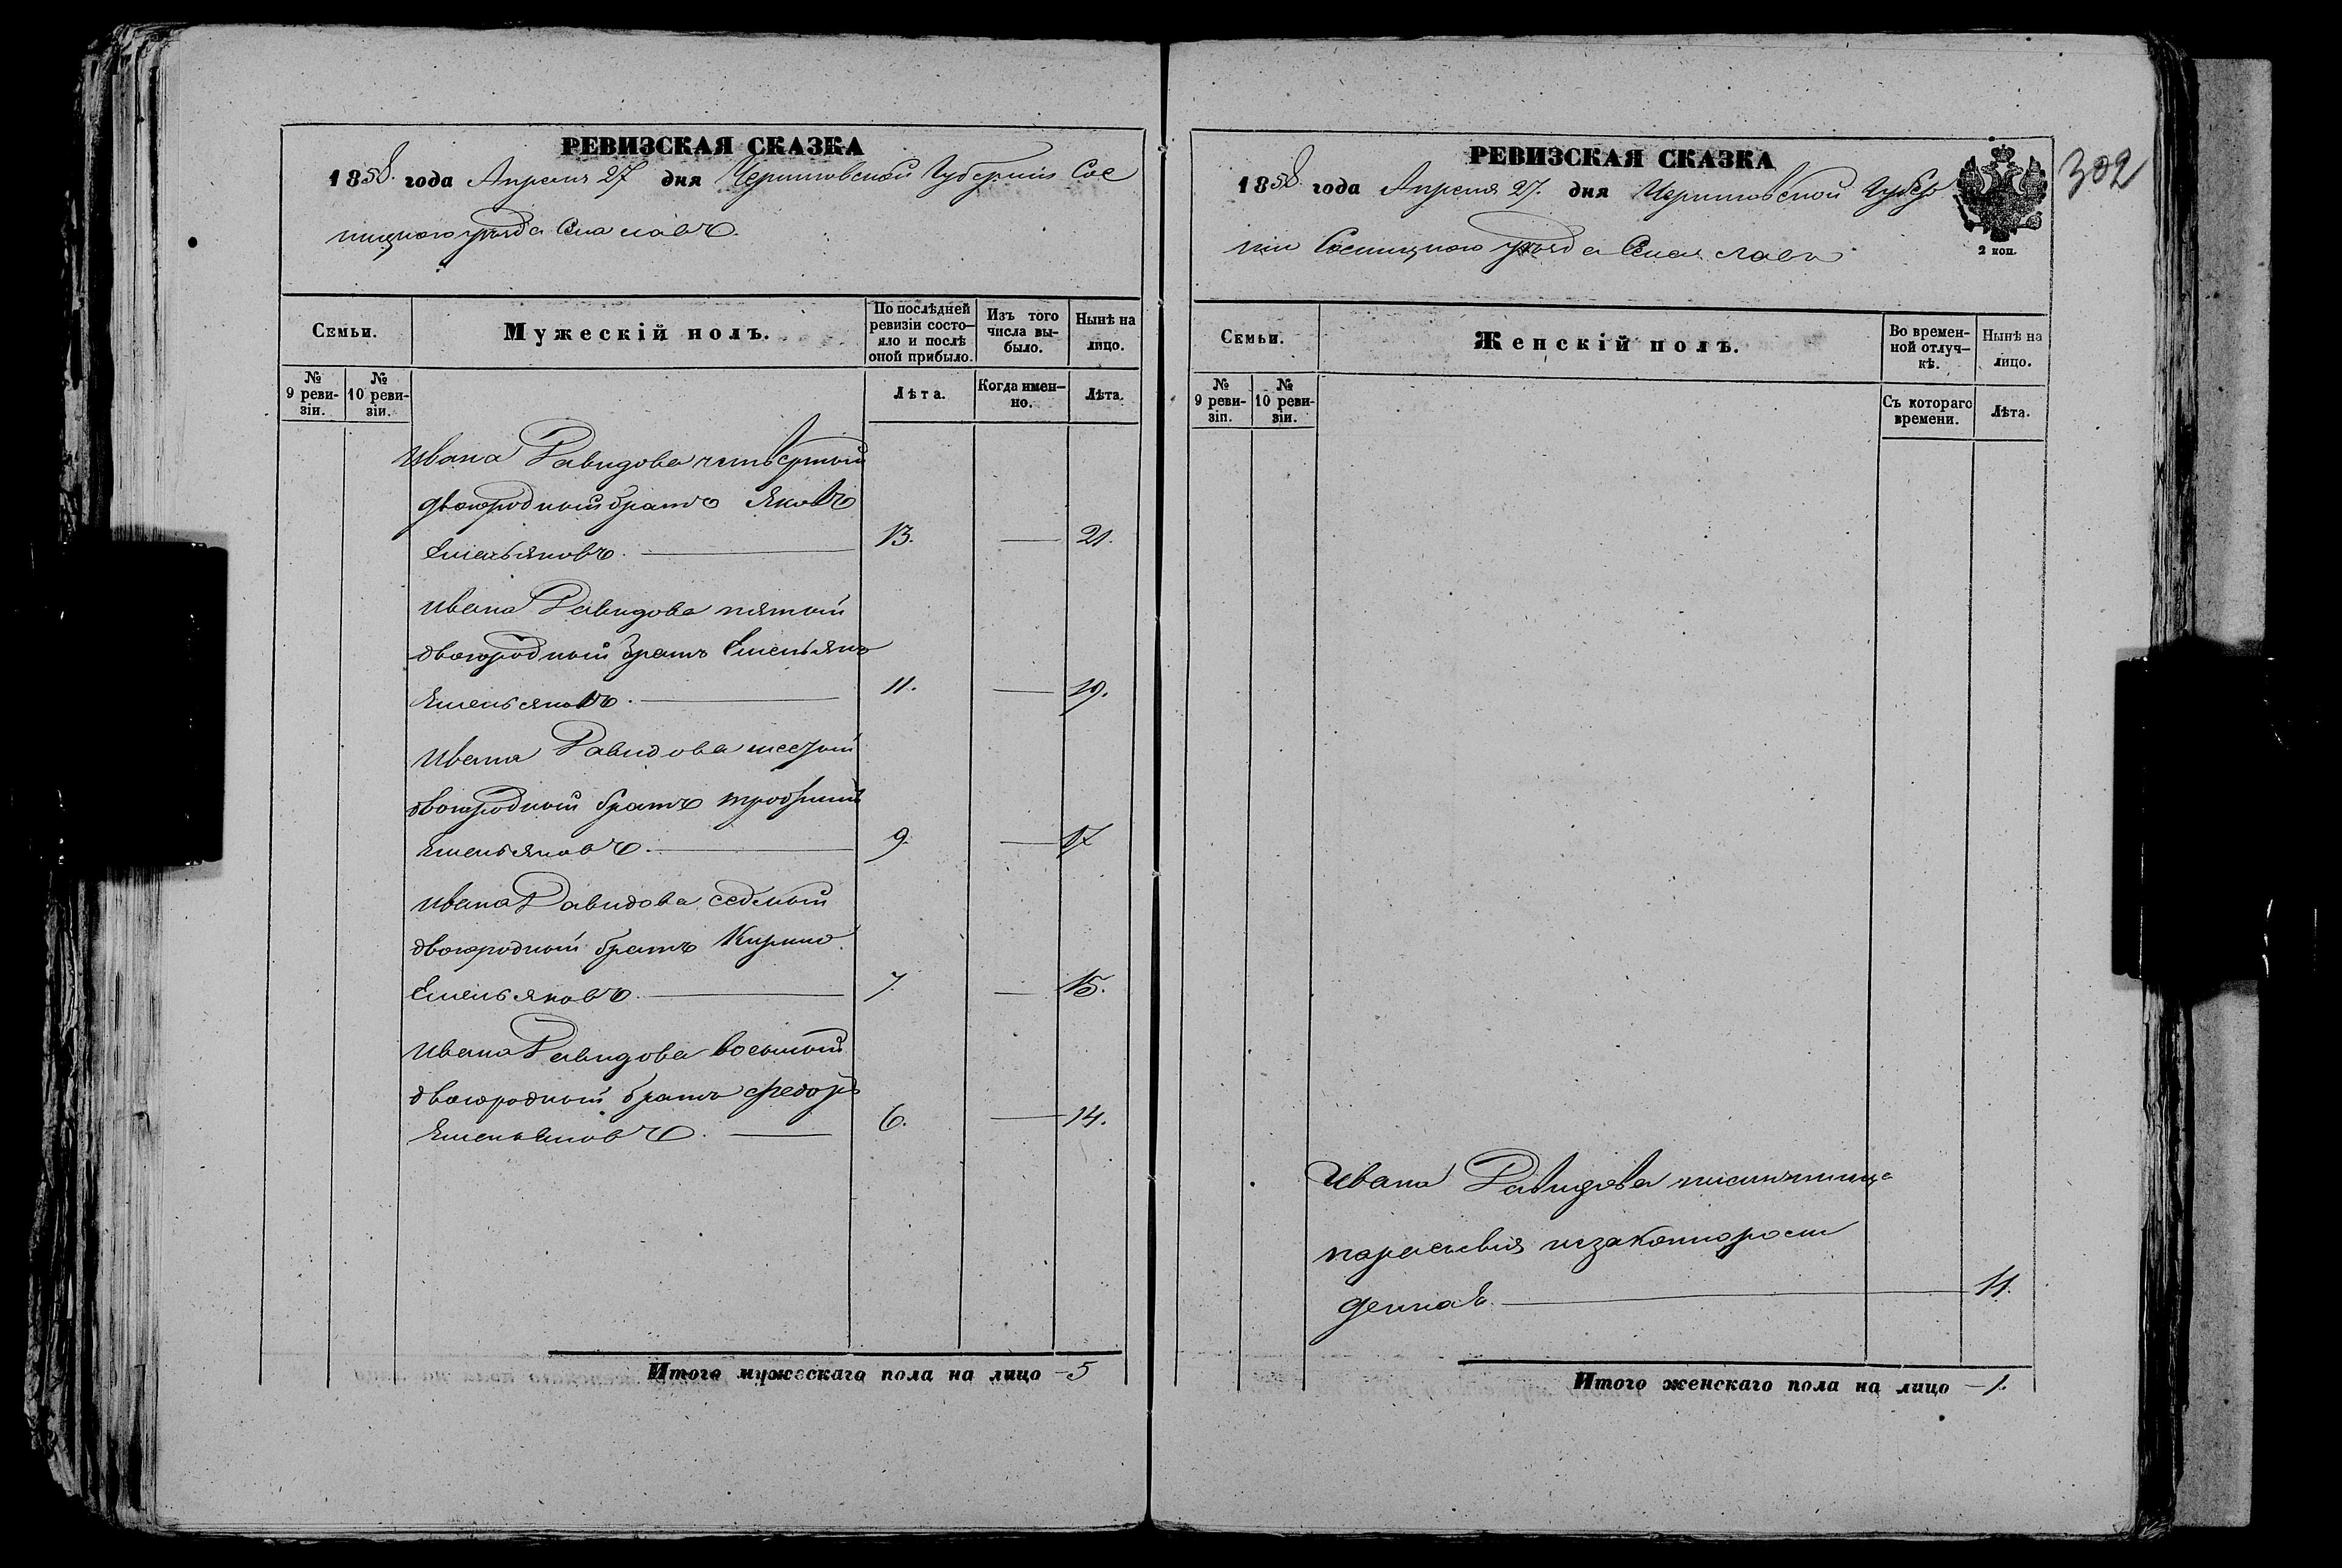 РЕВИЗСКАЯ СКАЗКА
1858. года Апреля 27 дня Черниговской Губерніи Сос
ницкого уѣзда Села
Семьи.
Мужескій полъ.
По послѣдней ревизіи состо-
яло и послѣ оной прибыло.
Изъ того числа вы-
было.
Нынѣ на лицо.
№ 9 реви-
зіи.
№ 10 реви-
зіи.
Лѣта.
Когда имен-
но.
Лѣта.
Ивана Давидова четвертый
двоюродный братъ Яковъ
Емельяновъ. 13. — 21.
Ивана Давидова пятый
двоюродный братъ Емельянъ
Емельяновъ. 11. — 19.
Ивана Давидова шестый
двоюродный братъ трофимъ
Емельяновъ. 9. — 17
Ивана Давидова седмый
двоюродный братъ Кирило
Емельяновъ. 7. — 15.
Ивана Давидова восьмый
двоюродный братъ Федоръ
Емельяновъ. 6. — 14.
Итого мужескаго пола на лицо — 5
РЕВИЗСКАЯ СКАЗКА
1858. года Апреля 27. дня Черниговской Губер
ніи Сосницкого уѣзда Села
2 коп.
302
Семьи.
Женскій полъ.
Во времен-
ной отлуч-
кѣ.
Нынѣ на лицо.
№ 9 реви-
зіи.
№ 10 реви-
зіи.
Съ котораго времени.
Лѣта.
Ивана Давидова племянница
параскевія незаконнорож
денная. 11.
Итого женскаго пола на лицо — 1.